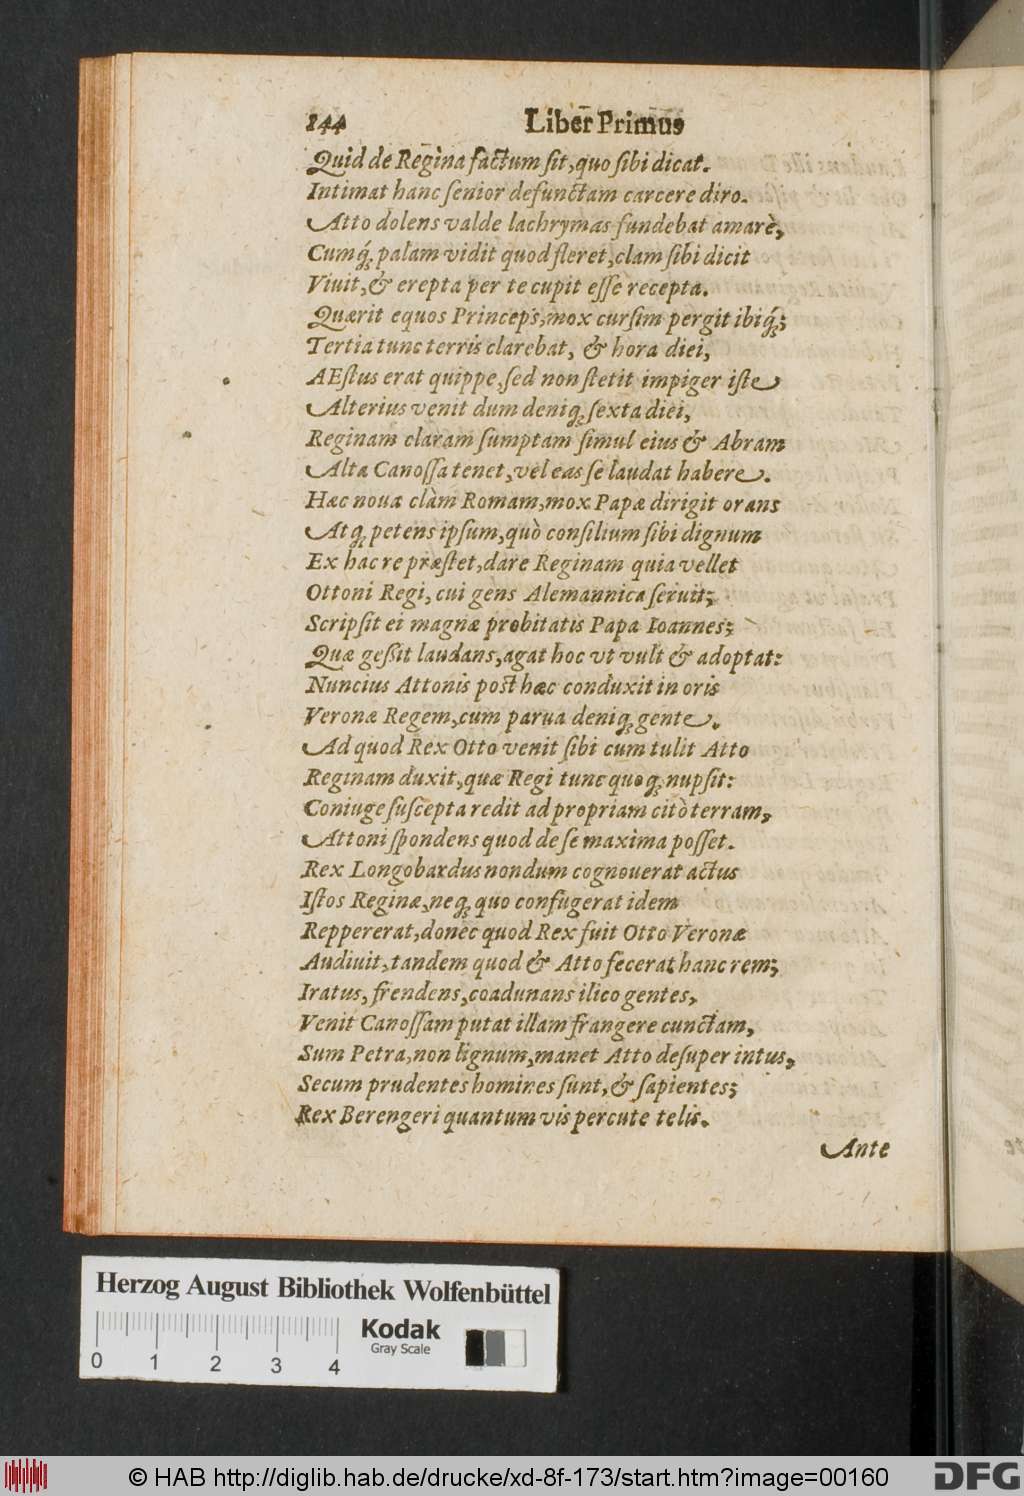 144 Liber Primus
Quid de Regina factum sit, quo sibi dicat.
Intimat hanc senior defunctam carcere diro.
Atto dolens valde lachrymas fundebat amarè,
Cumq́; palam vidit quod fleret, clam sibi dicit
Viuit, & erepta per te cupit esse recepta.
Quærit equos Princeps, mox cursim pergit ibiq́;;
Tertia tunc terris clarebat, & hora diei,
AEstus erat quippe, sed non stetit impiger iste
Alterius venit dum deniq; sexta diei,
Reginam claram sumptam simul eius & Abram
Alta Canossa tenet, vel eas se laudat habere.
Hæc noua clàm Romam, mox Papæ dirigit orans
Atq; petens ipsum, quò consilium sibi dignum
Ex hac re præstet, dare Reginam quia vellet
Ottoni Regi, cui gens Alemannica seruit;
Scripsit ei magnæ probitatis Papa Ioannes;
Quæ gessit laudans, agat hoc vt vult & adoptat:
Nuncius Attonis post hæc conduxit in oris
Veronæ Regem, cum parua deniq; gente.
Ad quod Rex Otto venit sibi cum tulit Atto
Reginam duxit, quæ Regi tunc quoq; nupsit:
Coniuge suscepta redit ad propriam citò terram,
Attoni spondens quod de se maxima posset.
Rex Longobardus nondum cognouerat actus
Istos Reginæ, neq; quo confugerat idem
Reppererat, donec quod Rex fuit Otto Veronæ
Audiuit, tandem quod & Atto fecerat hanc rem;
Iratus, frendens, coadunans ilico gentes,
Venit Canossam putat illam frangere cunctam,
Sum Petra, non lignum, manet Atto desuper intus,
Secum prudentes homines sunt, & sapientes;
Rex Berengeri quantum vis percute telis.
Ante
Herzog August Bibliothek Wolfenbüttel
Kodak
Gray Scale
0 1 2 3 4
© HAB http://diglib.hab.de/drucke/xd-8f-173/start.htm?image=00160
DFG